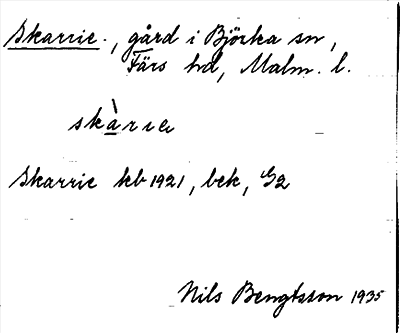 Skarrie., gård i Björka sn,
Färs hd, Malm. l.
skàrra
Skarrie kb 1921, bek, G2
Nils Bengtsson 1935